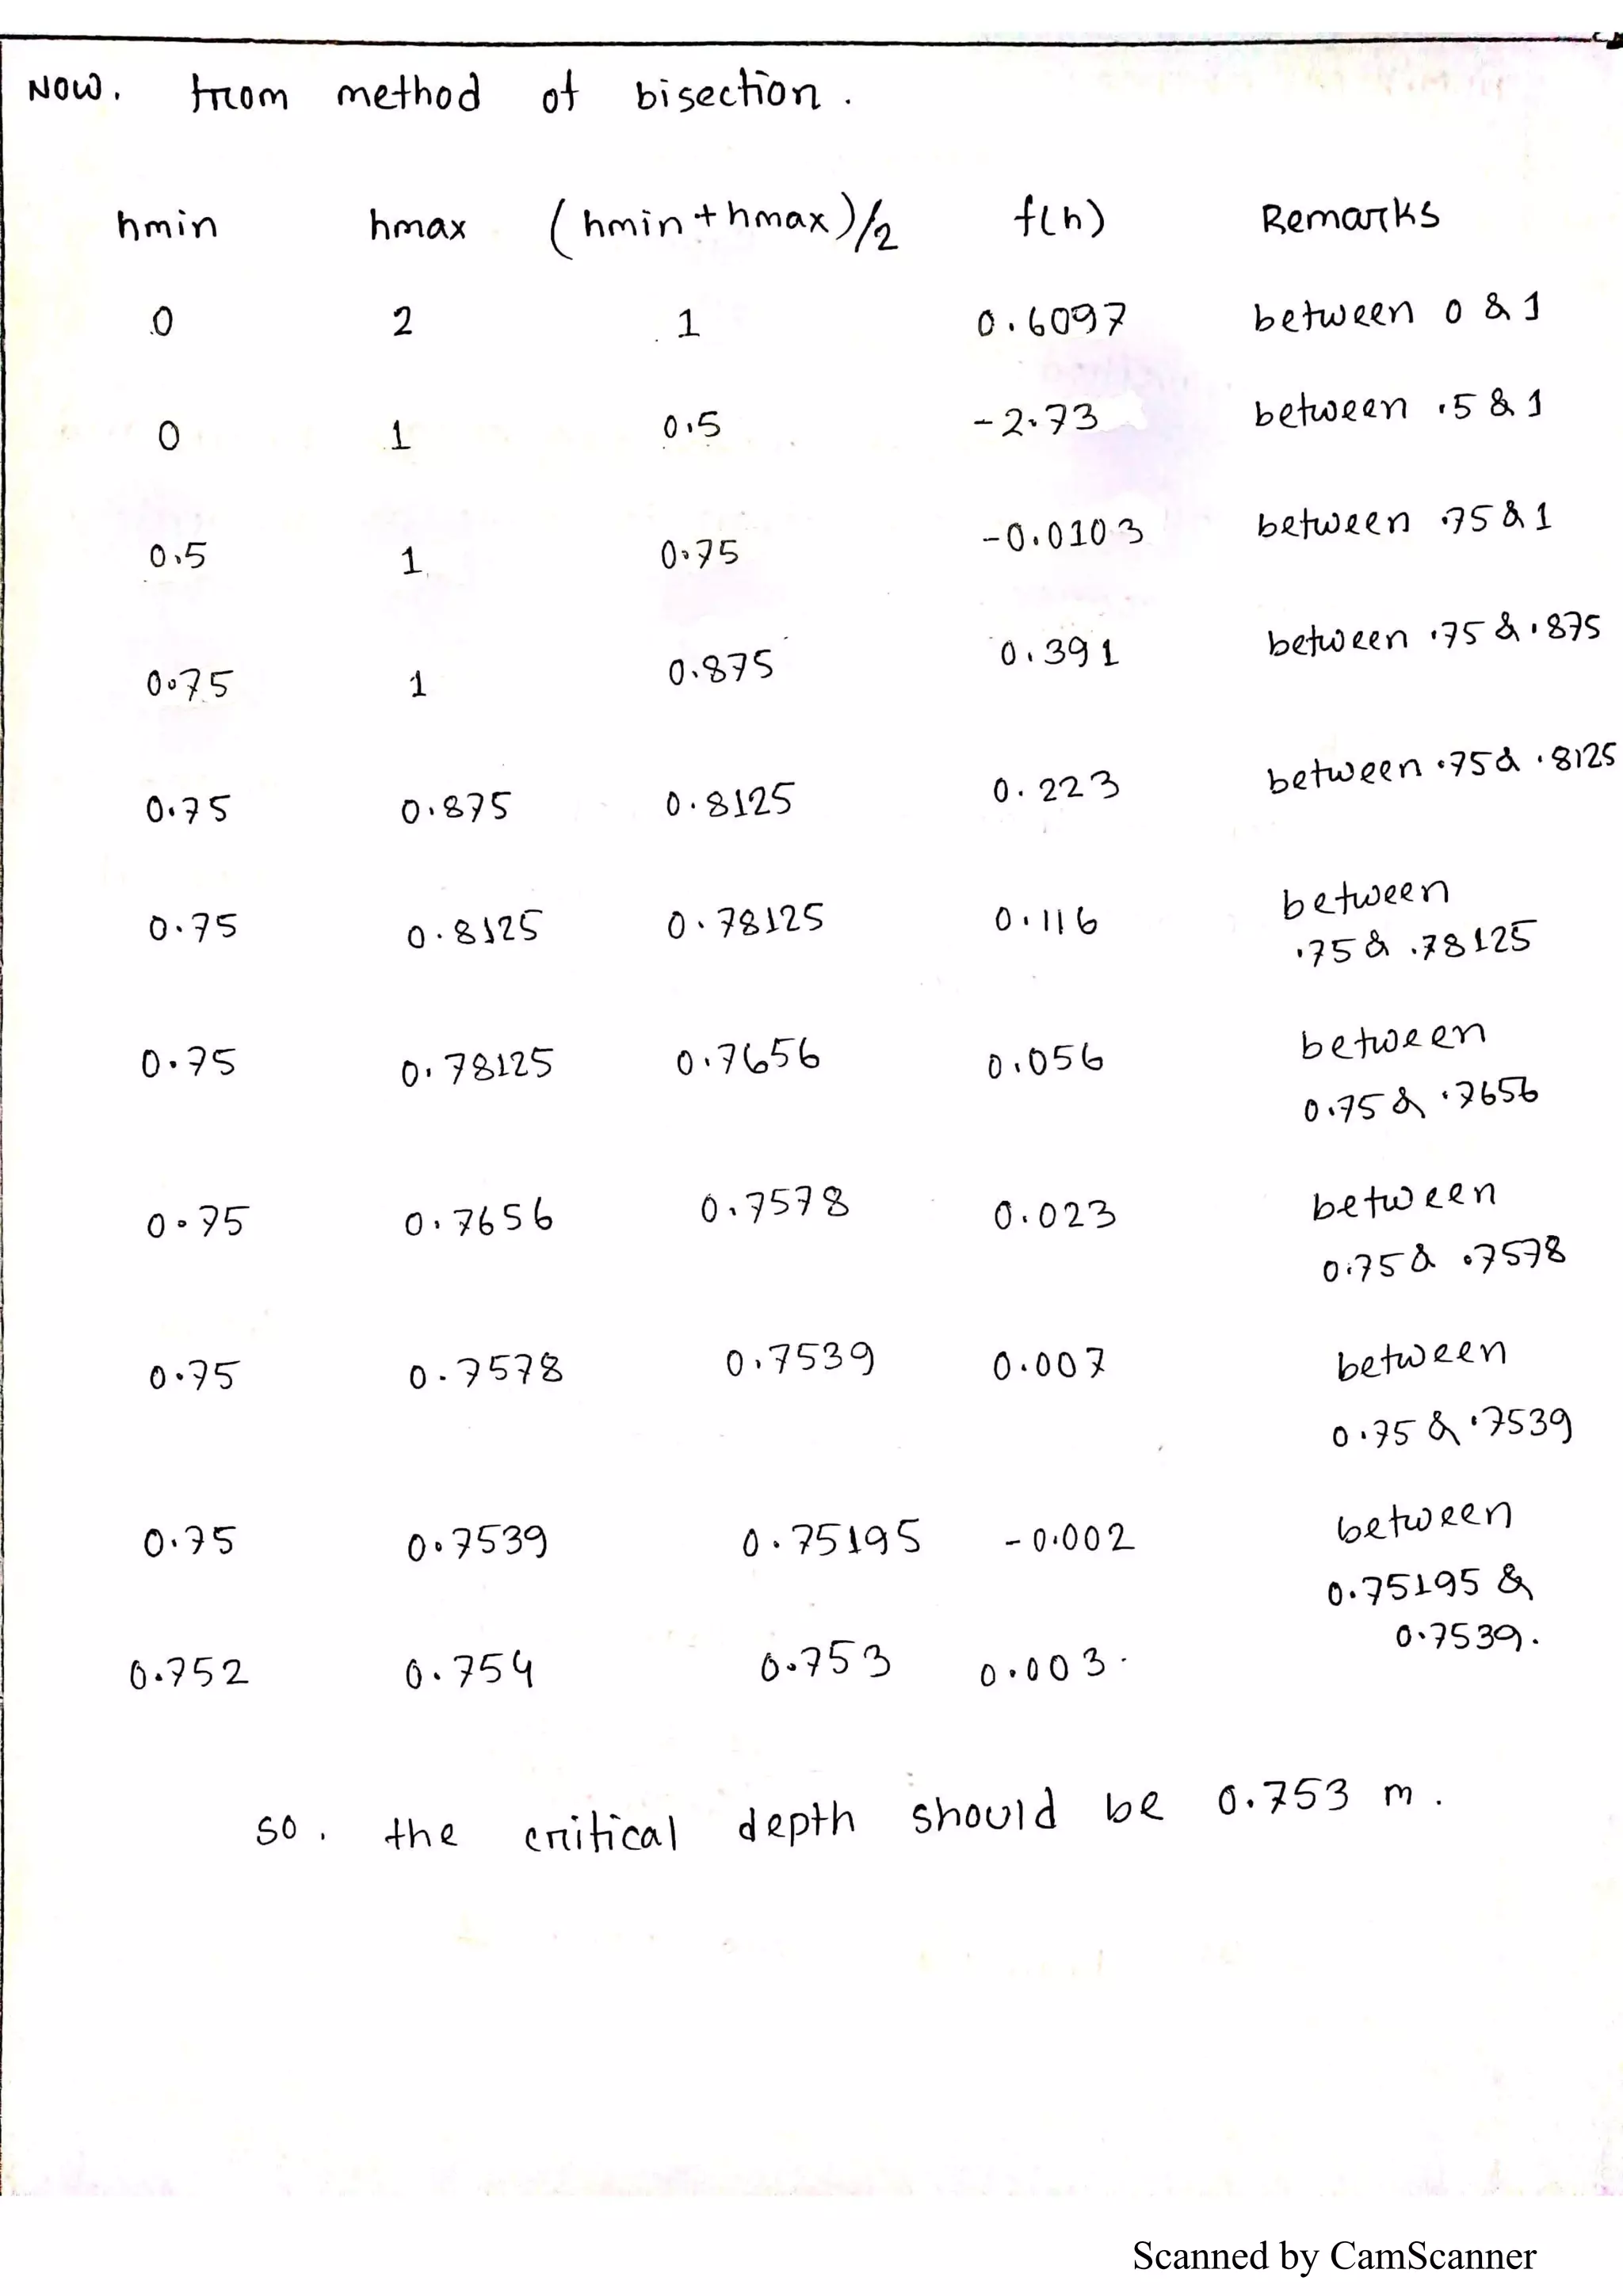 NOW. from method of bisection.
hmin hmax (hmin + hmax)/2 f(h) Remarks
0 2 1 0.6097 between 0 & 1
0 1 0.5 -2.73 between .5 & 1
0.5 1 0.75 -0.0103 between .75 & 1
0.75 1 0.875 0.391 between .75 & .875
0.75 0.875 0.8125 0.223 between .75 & .8125
0.75 0.8125 0.78125 0.116 between
.75 & .78125
0.75 0.78125 0.7656 0.056 between
0.75 & .7656
0.75 0.7656 0.7578 0.023 between
0.75 & .7578
0.75 0.7578 0.7539 0.007 between
0.75 & .7539
0.75 0.7539 0.75195 -0.002 between
0.75195 &
0.7539.
0.752 0.754 0.753 0.003.
so. the critical depth should be 0.753 m.
Scanned by CamScanner